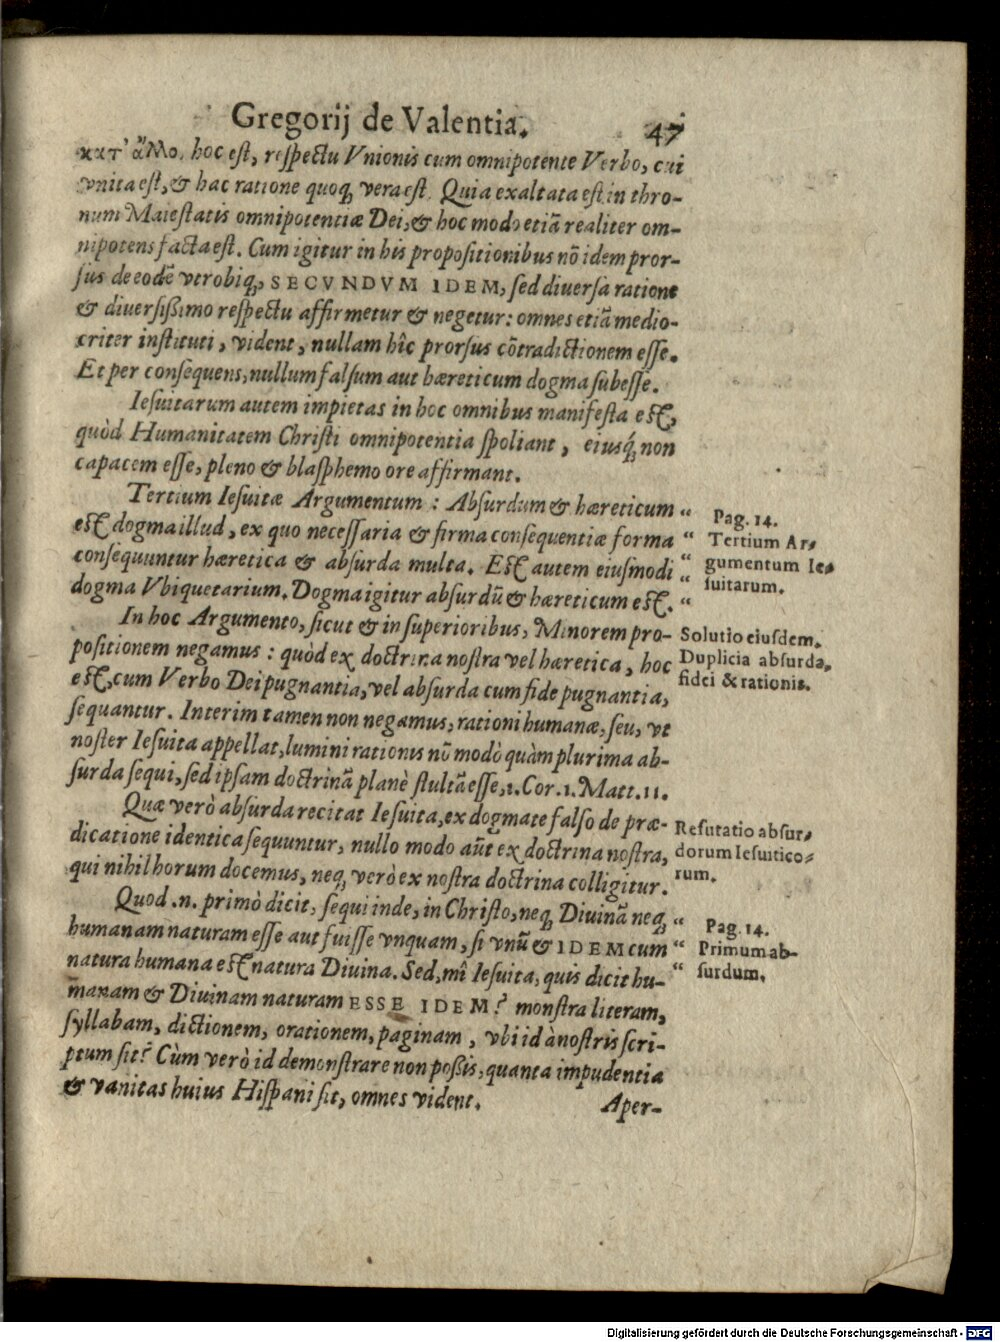 Gregorij de Valentia. 47
κατ' ἄλλο, hoc est, respectu Vnionis cum omnipotente Verbo, cui
vnita est, & hac ratione quoq; vera est. Quia exaltata est in thro-
num Maiestatis omnipotentiæ Dei, & hoc modo etiã realiter om-
nipotens facta est. Cum igitur in his propositionibus nõ idem pror-
sus de eodẽ vtrobiq;, SECVNDVM IDEM, sed diuersa ratione
& diuersißimo respectu affirmetur & negetur: omnes etiã medio-
criter instituti, vident, nullam hîc prorsus cõtradictionem esse.
Et per consequens, nullum falsum aut hæreticum dogma subesse.
Iesuitarum autem impietas in hoc omnibus manifesta est,
quòd Humanitatem Christi omnipotentia spoliant, eiusq́; non
capacem esse, pleno & blasphemo ore affirmant.
Tertium Iesuitæ Argumentum: Absurdum & hæreticum “ Pag. 14.
est dogma illud, ex quo necessaria & firma consequentiæ forma “ Tertium Ar-
consequuntur hæretica & absurda multa. Est autem eiusmodi “ gumentum Ie-
dogma Vbiquetarium. Dogma igitur absurdũ & hæreticum est. “ suitarum.
In hoc Argumento, sicut & in superioribus, Minorem pro- Solutio eiusdem.
positionem negamus: quòd ex doctrina nostra vel hæretica, hoc Duplicia absurda,
est, cum Verbo Dei pugnantia, vel absurda cum fide pugnantia, fidei & rationis.
sequantur. Interim tamen non negamus, rationi humanæ, seu, vt
noster Iesuita appellat, lumini rationis nõ modò quàm plurima ab-
surda sequi, sed ipsam doctrinã planè stultã esse, 1. Cor. 1. Matt. 11.
Quæ verò absurda recitat Iesuita, ex dogmate falso de præ- Refutatio absur-
dicatione identica sequuntur, nullo modo aũt ex doctrina nostra, dorum Iesuitico-
qui nihil horum docemus, neq; verò ex nostra doctrina colligitur. rum.
Quod .n. primò dicit, sequi inde, in Christo, neq; Diuinã neq; “ Pag. 14.
humanam naturam esse aut fuisse vnquam, si vnũ & IDEM cum “ Primum ab-
natura humana est natura Diuina. Sed, mî Iesuita, quis dicit hu- “ surdum.
manam & Diuinam naturam ESSE IDEM? monstra literam,
syllabam, dictionem, orationem, paginam, vbi id à nostris scri-
ptum sit? Cùm verò id demonstrare non poßis, quanta impudentia
& vanitas huius Hispani sit, omnes vident.
Aper-
Digitalisierung gefördert durch die Deutsche Forschungsgemeinschaft - DFG